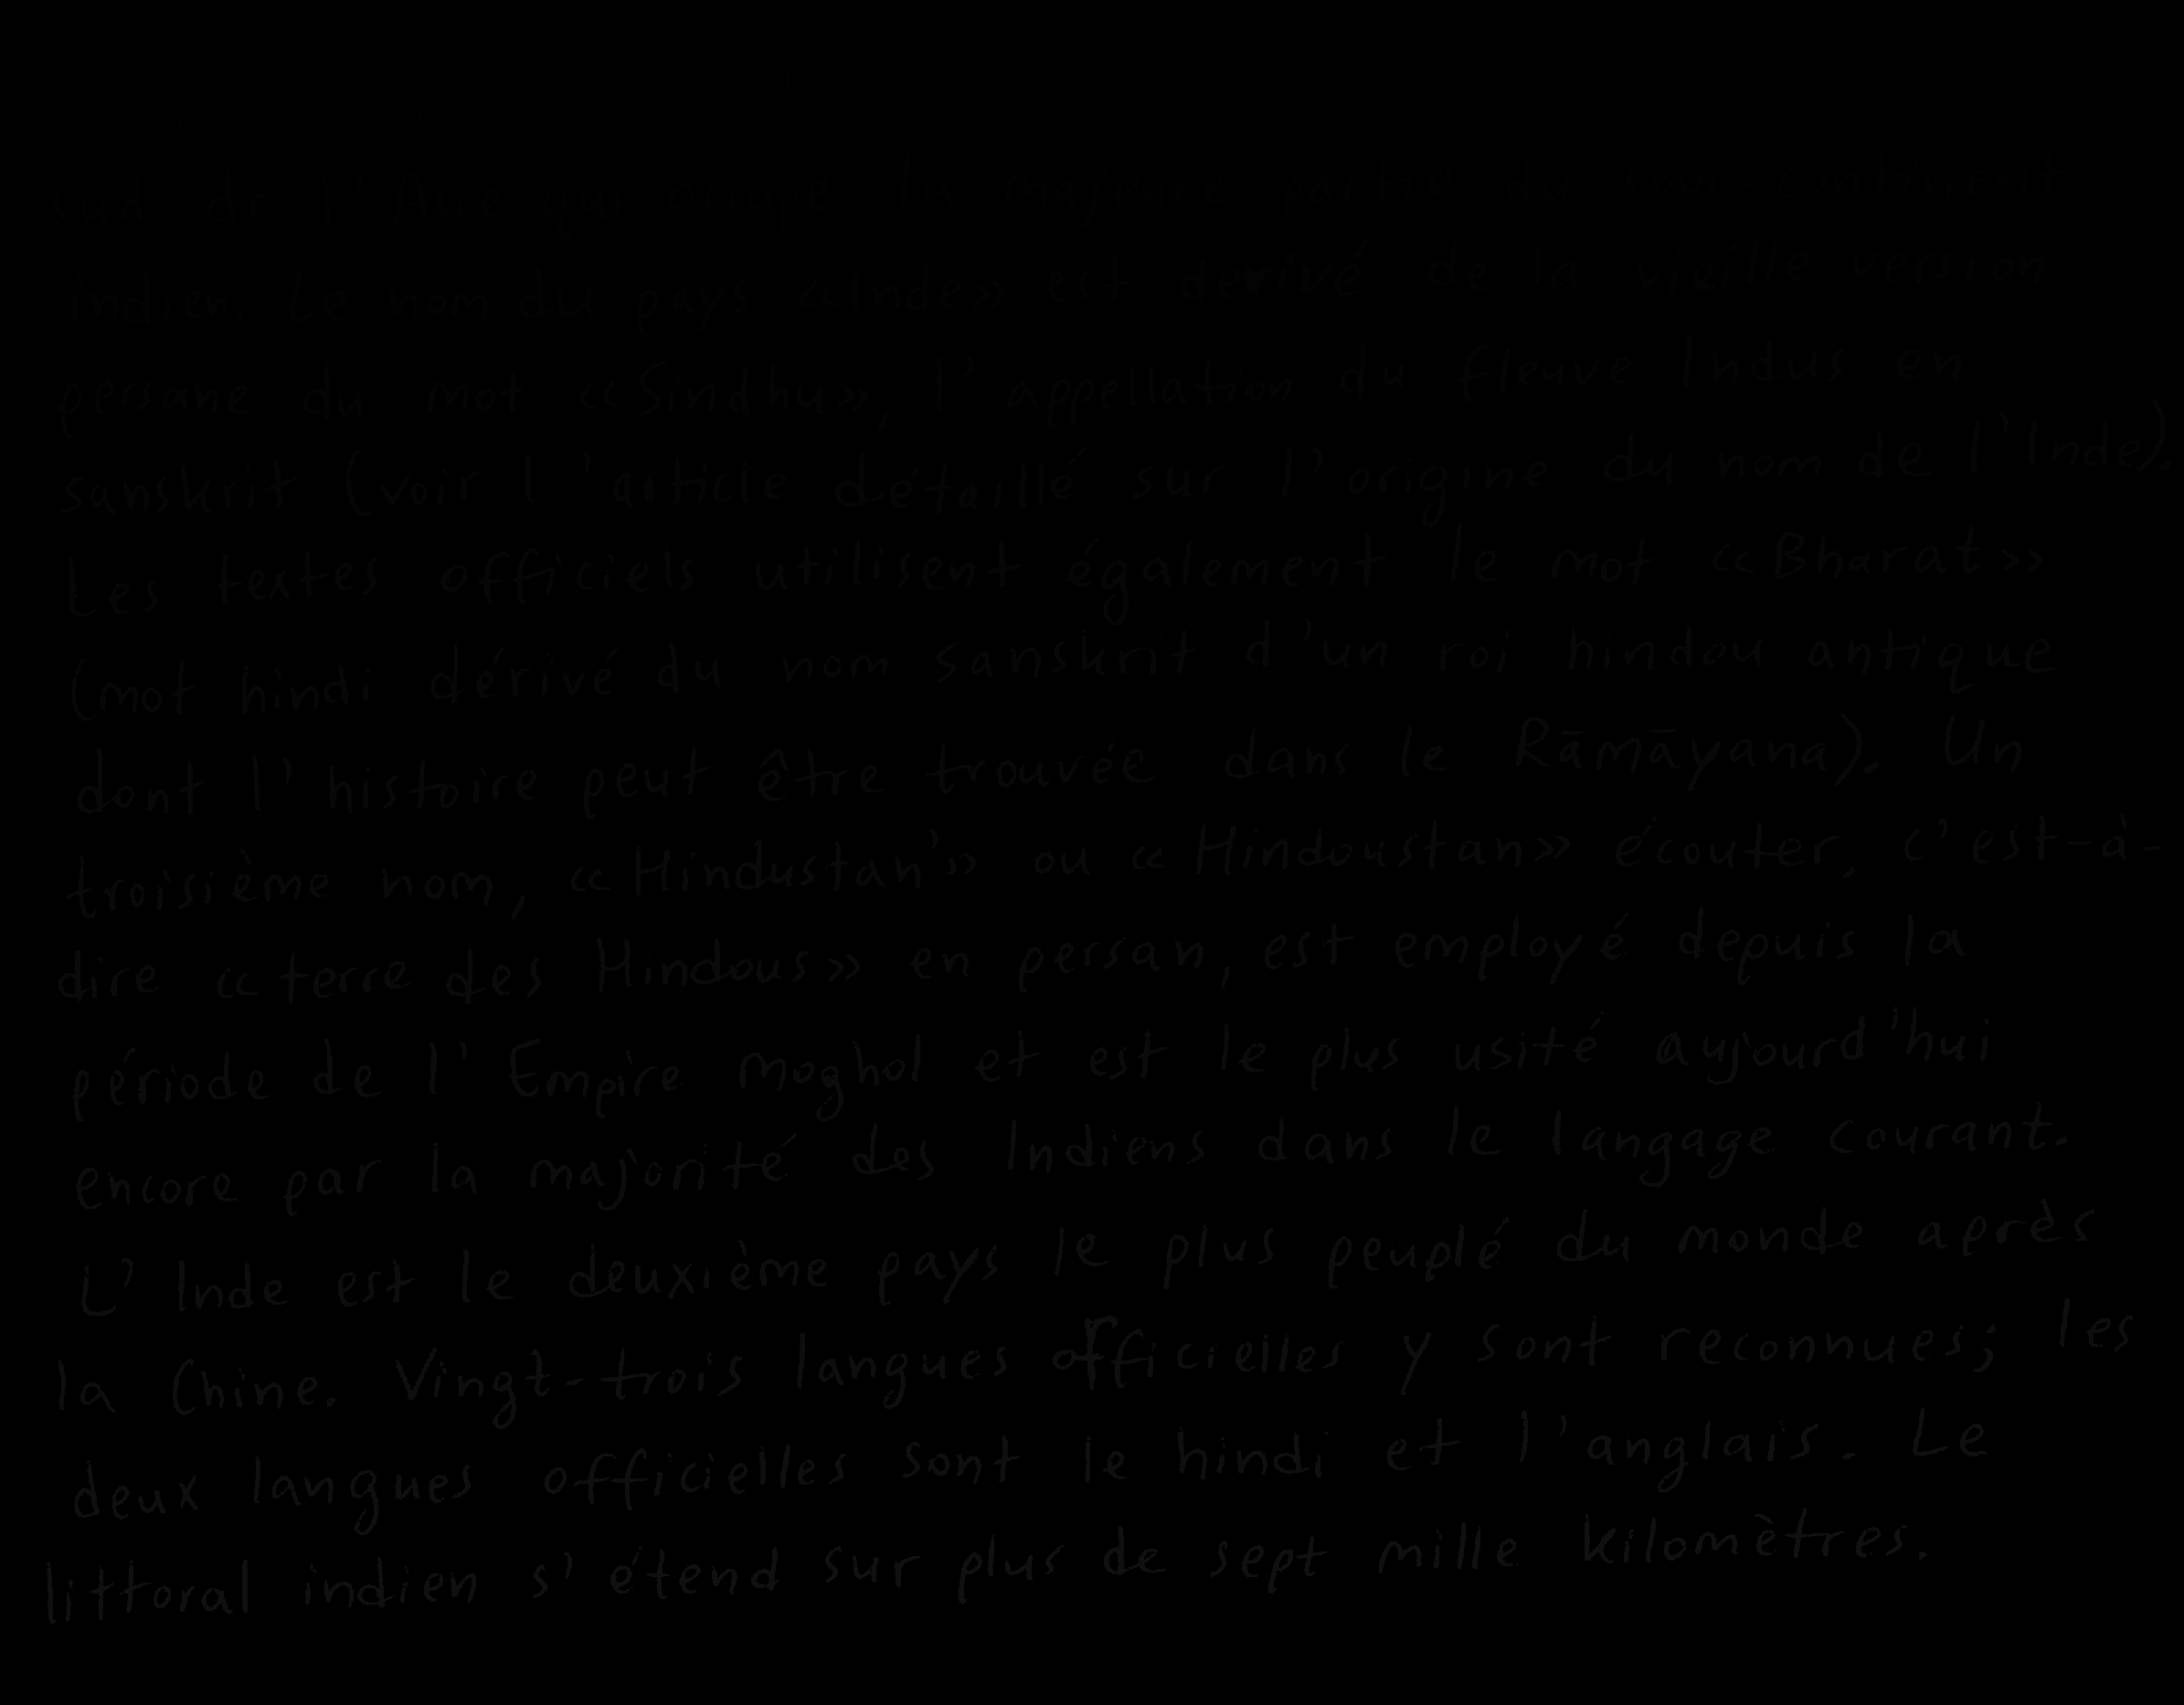 L'Inde, officiellement la République de l'Inde est un pays du
sud de l'Asie qui occupe la majeure partie du sous-continent
indien. Le nom du pays «Inde» est dérivé de la vieille version
persane du mot «Sindhu», l'appellation du fleuve Indus en
sanskrit (voir l'article détaillé sur l'origine du nom de l'Inde).
Les textes officiels utilisent également le mot «Bharat»
(mot hindi dérivé du nom sanskrit d'un roi hindou antique
dont l'histoire peut être trouvée dans le Rāmāyana). Un
troisième nom, «Hindustan'» ou «Hindoustan» écouter, c'est-à-
dire «terre des Hindous» en persan, est employé depuis la
période de l'Empire moghol et est le plus usité aujourd'hui
encore par la majorité des Indiens dans le langage courant.
L'Inde est le deuxième pays le plus peuplé du monde après
la Chine. Vingt-trois langues officielles y sont reconnues; les
deux langues officielles sont le hindi et l'anglais. Le
littoral indien s'étend sur plus de sept mille kilomètres.